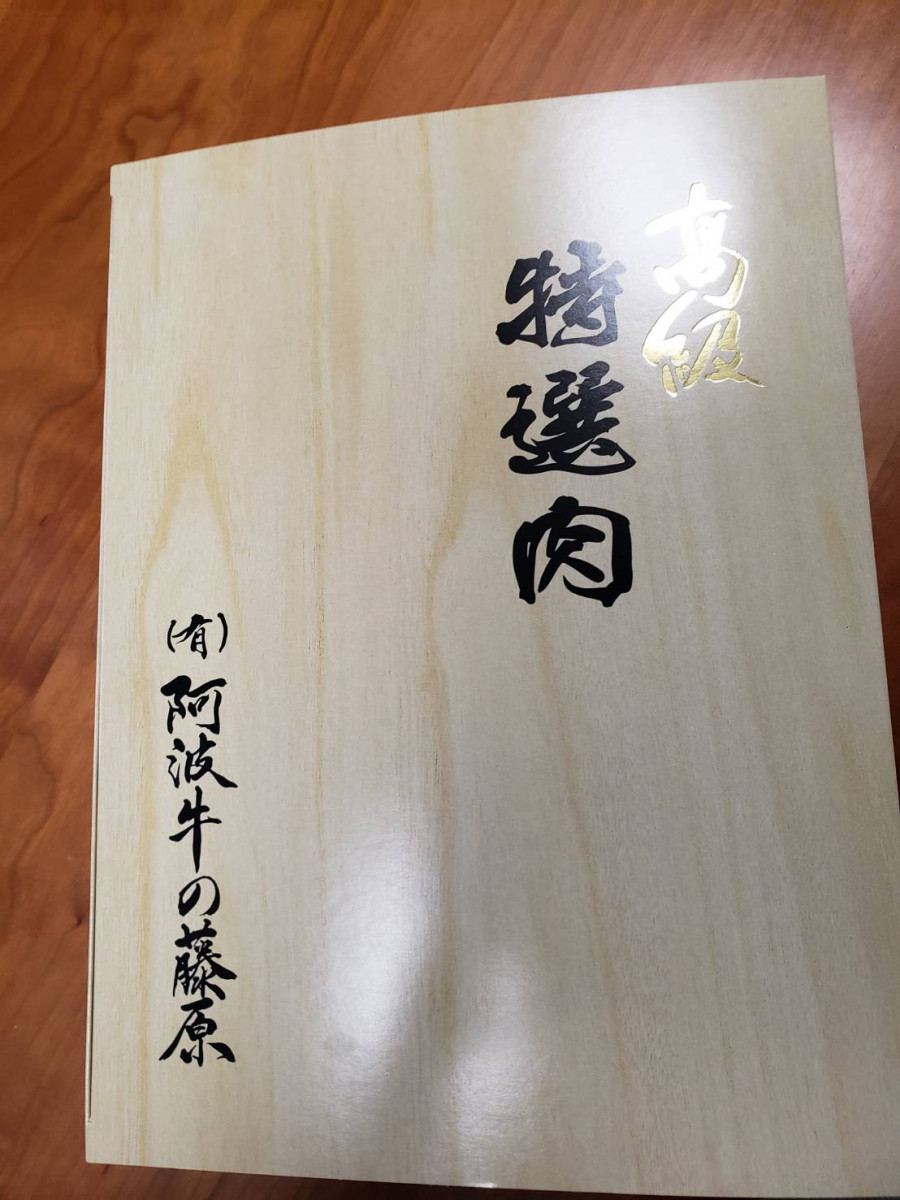 高級
特選肉
(有)阿波牛の藤原